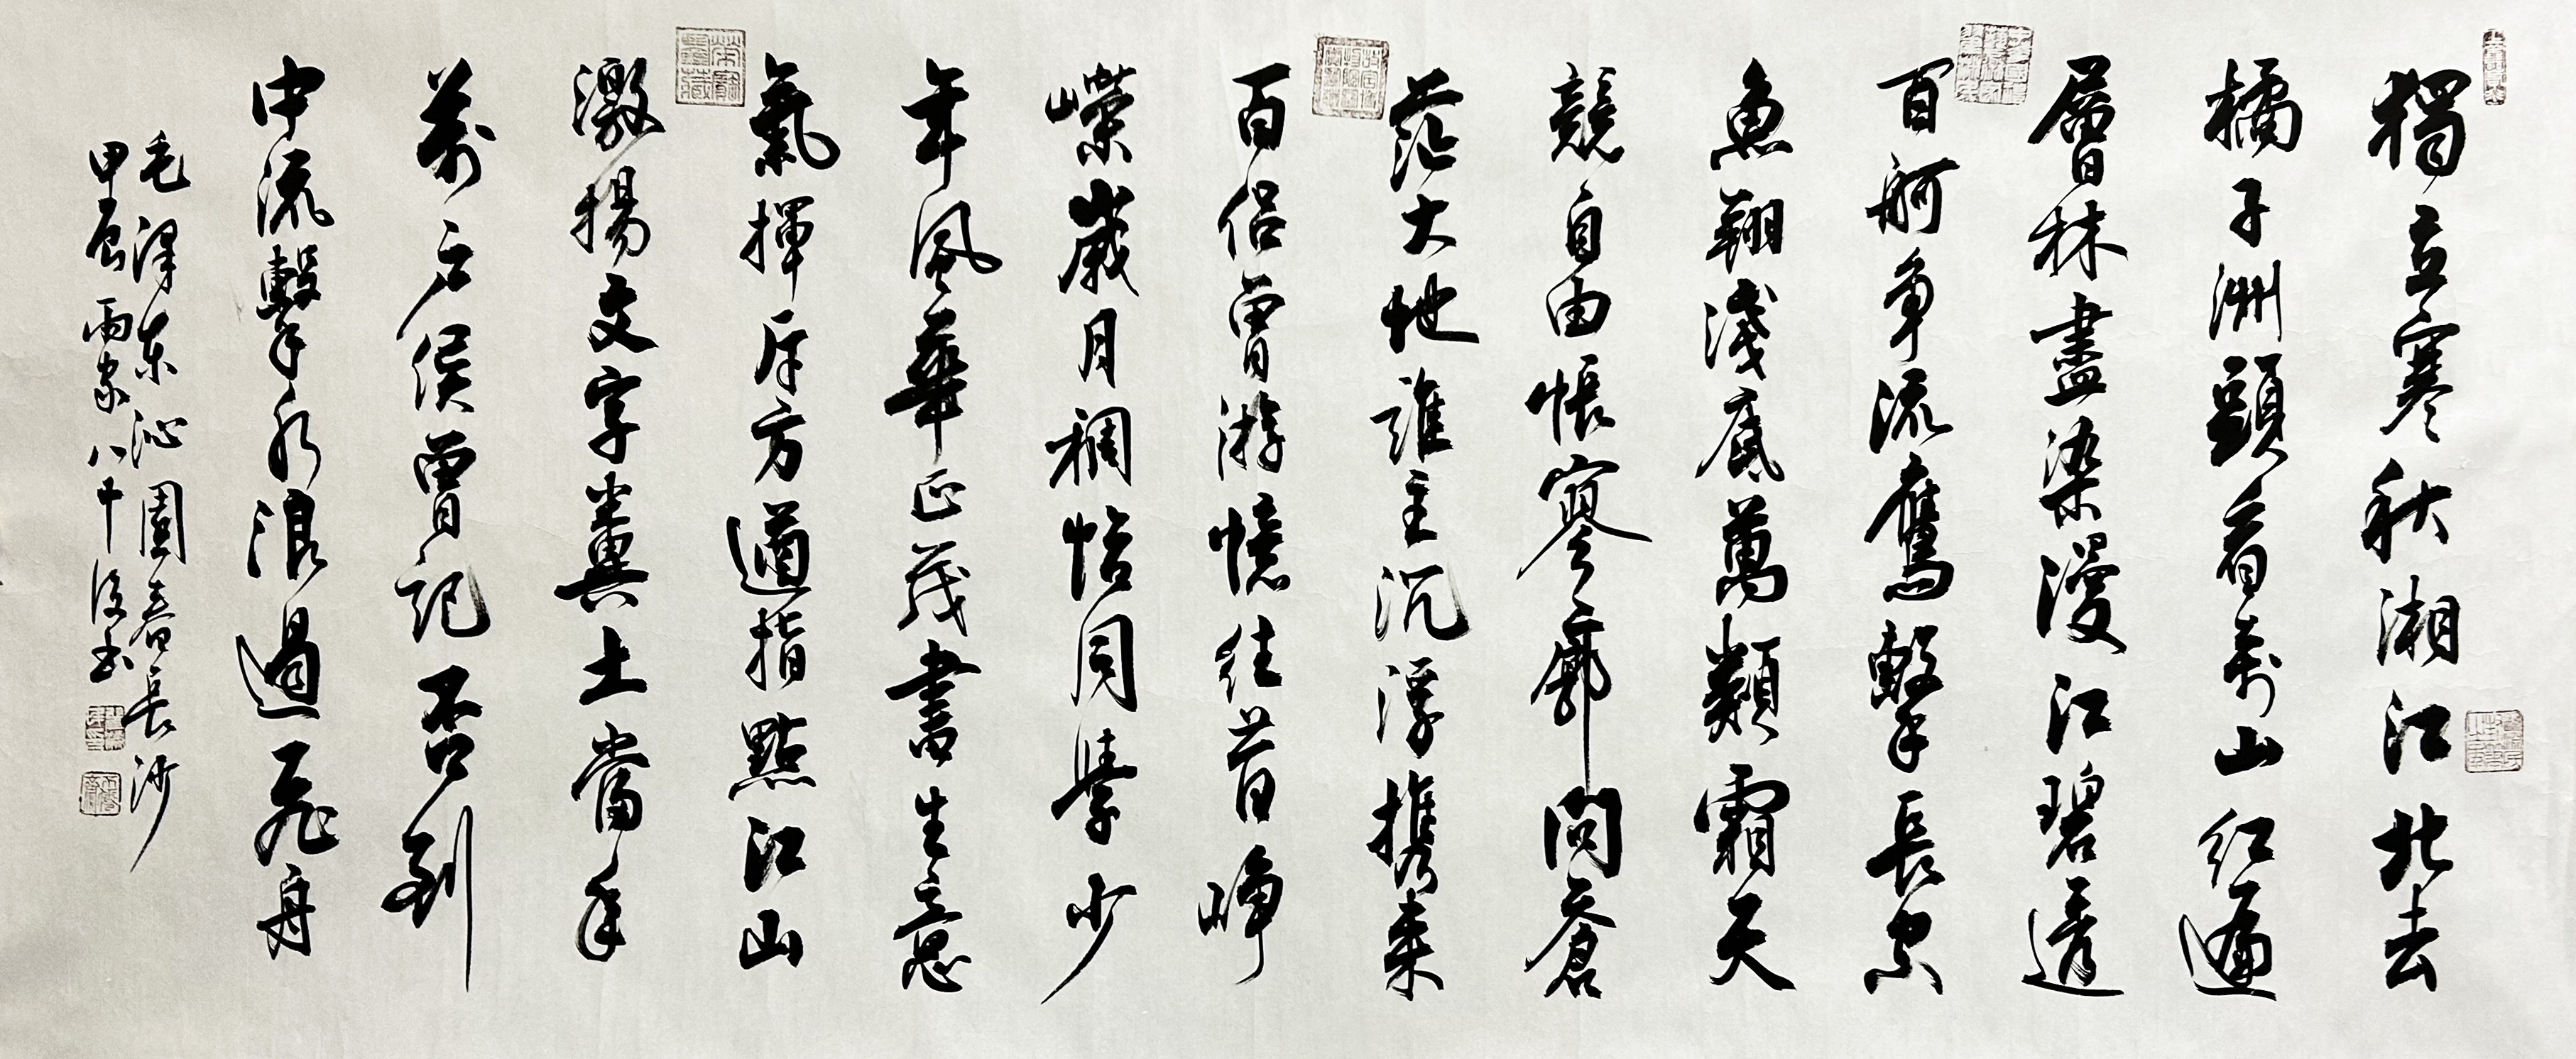 獨立寒秋湘江北去
橘子洲頭看萬山紅遍
層林盡染漫江碧透
百舸爭流鷹擊長空
魚翔淺底萬類霜天
競自由悵寥廓問蒼
茫大地誰主沉浮攜來
百侶曾游憶往昔崢
嶸歲月稠恰同學少
年風華正茂書生意
氣揮斥方遒指點江山
激揚文字糞土當年
萬戶侯曾記否到
中流擊水浪遏飛舟
毛澤東沁園春長沙
甲辰雨家八十後書